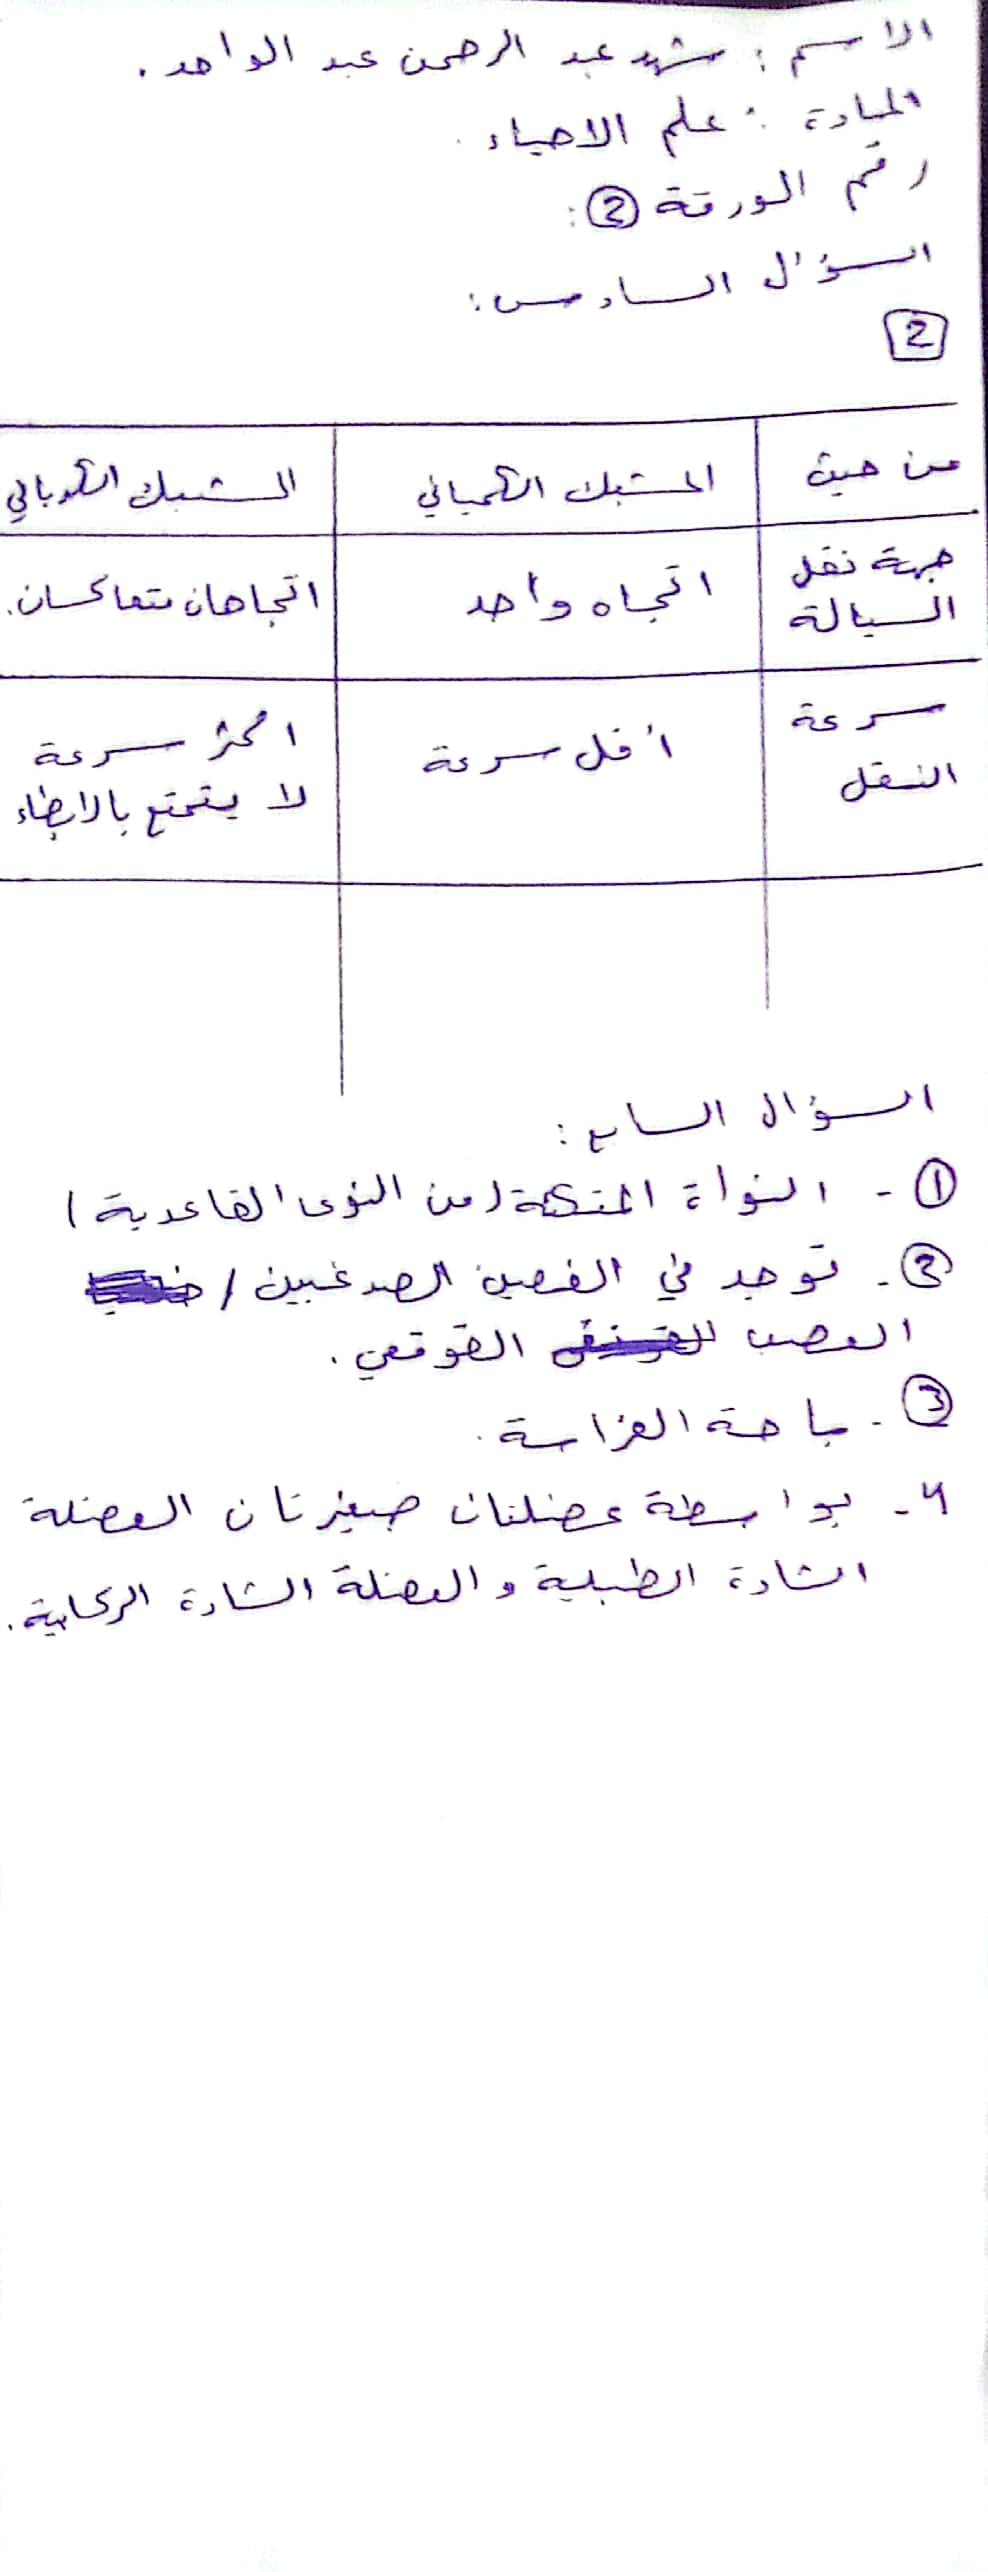 الاسم : شهد عبد الرحمن عبد الواحد .
المادة : علم الاحياء .
رقم الورقة ② :
السؤال السادس :
2
من حيث | المشبك الكيميائي | المشبك الكهربائي
جهة نقل السيالة | اتجاه واحد | اتجاهان متعاكسان .
سرعة النقل | أقل سرعة | اكثر سرعة لا يتمتع بالابطاء
السؤال السابع :
① - النواة المذنبة (من النوى القاعدية)
② - توجد في الفصين الصدغيين /
العصب القوقعي .
③ - باحة الفراسة .
4 - بواسطة عضلتان صغيرتان العضلة
الشادة الطبلية والعضلة الشادة الركابية .